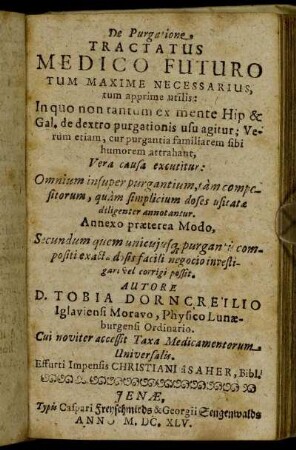 De Purgatione
TRACTATUS
MEDICO FUTURO
TUM MAXIME NECESSARIUS,
tum apprime utilis:
In quo non tantum ex mente Hip &
Gal. de dextro purgationis usu agitur; Ve-
rum etiam, cur purgantia familiarem sibi
humorem attrahant,
Vera causa excutitur:
Omnium insuper purgantium, tàm compo-
sitorum, quàm simplicium doses usitatæ
diligenter annotantur.
Annexo præterea Modo,
Secundum quem uniuscujusq; purgantis com-
positi exacta dosis facili negocio investi-
gari vel corrigi possit.
AUTORE
D. TOBIA DORNCREILIO
Iglaviensi Moravo, Physico Lunæ-
burgensi Ordinario.
Cui noviter accessit Taxa Medicamentorum
Universalis.
Effurti Impensis CHRISTIANI à SAHER, Bibl.
JENÆ,
Typis Caspari Freyschmieds & Georgii Sengenwalds
ANNO M. DC. XLV.